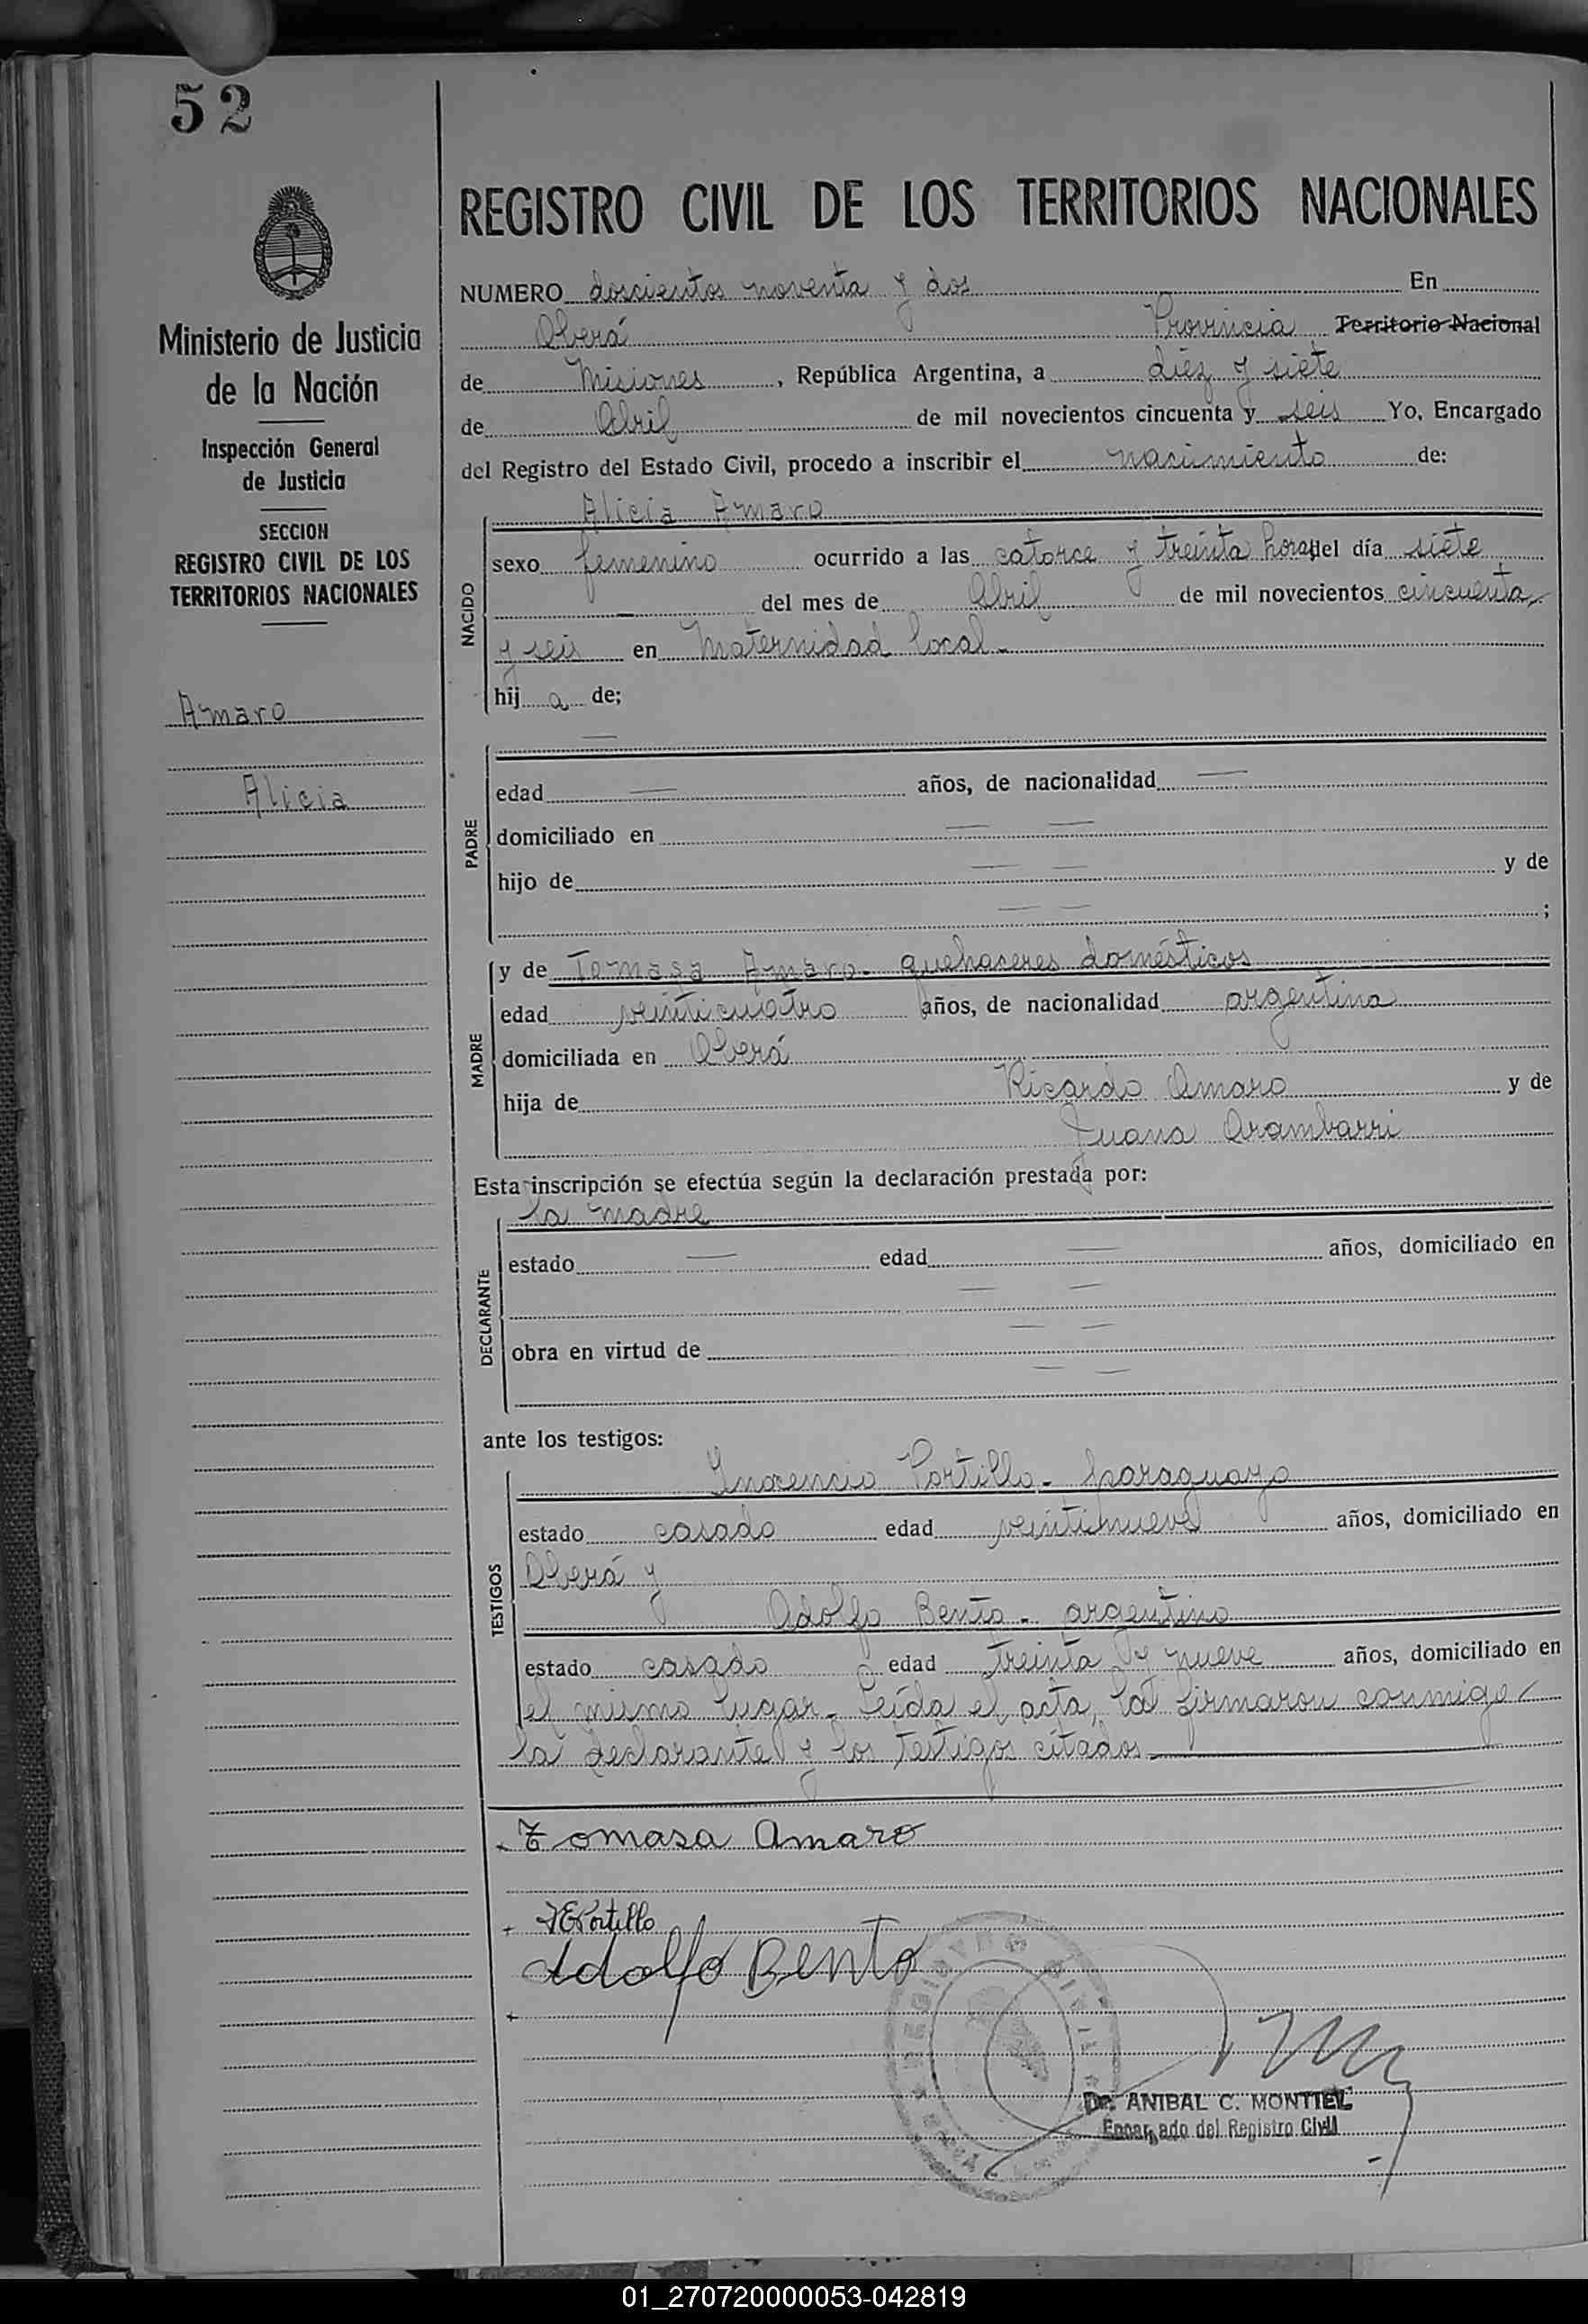 52
Ministerio de Justicia
de la Nación
Inspección General
de Justicia
SECCION
REGISTRO CIVIL DE LOS
TERRITORIOS NACIONALES
Amaro
Alicia
REGISTRO CIVIL DE LOS TERRITORIOS NACIONALES
NUMERO doscientos noventa y dos En
Oberá Provincia Territorio Nacional
de Misiones, República Argentina, a diez y siete
de Abril de mil novecientos cincuenta y seis Yo, Encargado
del Registro del Estado Civil, procedo a inscribir el nacimiento de:
NACIDO
Alicia Amaro
sexo femenino ocurrido a las catorce y treinta horas del día siete
— del mes de Abril de mil novecientos cincuenta
y seis en Maternidad local.
hija de;
PADRE
—
edad — años, de nacionalidad —
domiciliado en — —
hijo de — — y de
— — ;
MADRE
y de Tomasa Amaro. quehaceres domésticos
edad veinticuatro años, de nacionalidad argentina
domiciliada en Oberá
hija de Ricardo Amaro y de
Juana Arambarri
Esta inscripción se efectúa según la declaración prestada por:
DECLARANTE
la madre
estado — edad — años, domiciliado en
— —
obra en virtud de — —
— —
ante los testigos:
TESTIGOS
Inocencio Portillo - paraguayo
estado casado edad veintinueve años, domiciliado en
Oberá y
Adolfo Bento - argentino
estado casado edad treinta y nueve años, domiciliado en
el mismo lugar. Leída el acta, la firmaron conmigo
la declarante y los testigos citados
Tomasa Amaro
Portillo
Adolfo Bento
REGISTRO CIVIL
Dr. ANIBAL C. MONTIEL
Encargado del Registro Civil
01_270720000053-042819